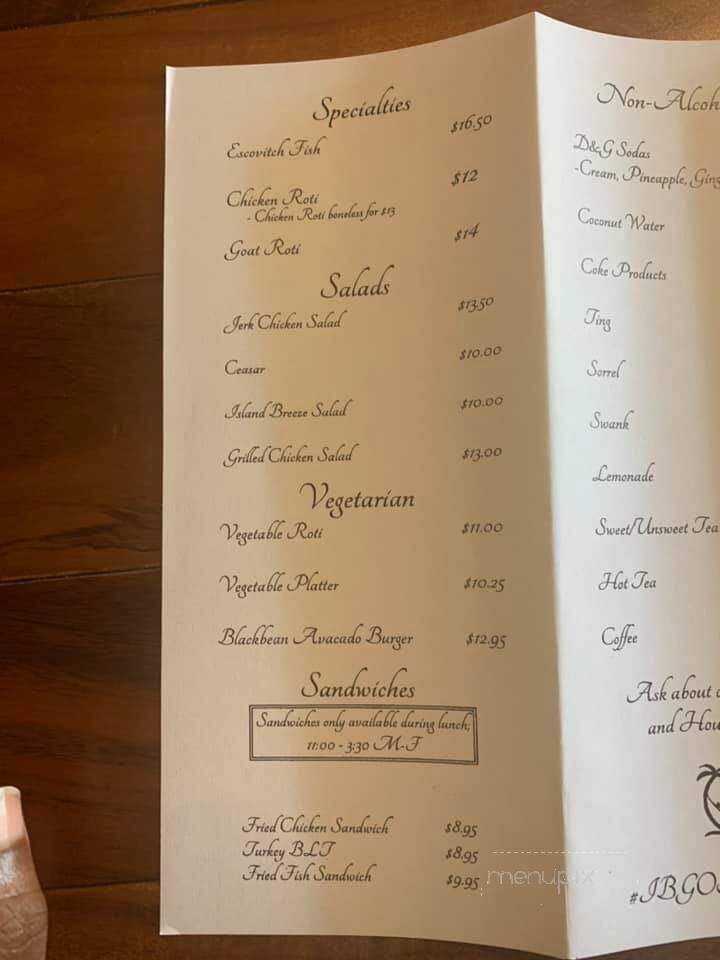 Specialties
Escovitch Fish $16.50
Chicken Roti $12
- Chicken Roti boneless for $13
Goat Roti $14
Salads
Jerk Chicken Salad $13.50
Ceasar $10.00
Island Breeze Salad $10.00
Grilled Chicken Salad $13.00
Vegetarian
Vegetable Roti $11.00
Vegetable Platter $10.25
Blackbean Avacado Burger $12.95
Sandwiches
Sandwiches only available during lunch;
11:00 - 3:30 M-F
Fried Chicken Sandwich $8.95
Turkey BLT $8.95
Fried Fish Sandwich $9.95
Non-Alcoh
D&G Sodas
-Cream, Pineapple, Ging
Coconut Water
Coke Products
Ting
Sorrel
Swank
Lemonade
Sweet/Unsweet Tea
Hot Tea
Coffee
Ask about
and Hou
menupix